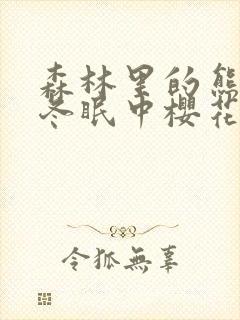 森林里的熊
冬眠中樱花
令狐無辜